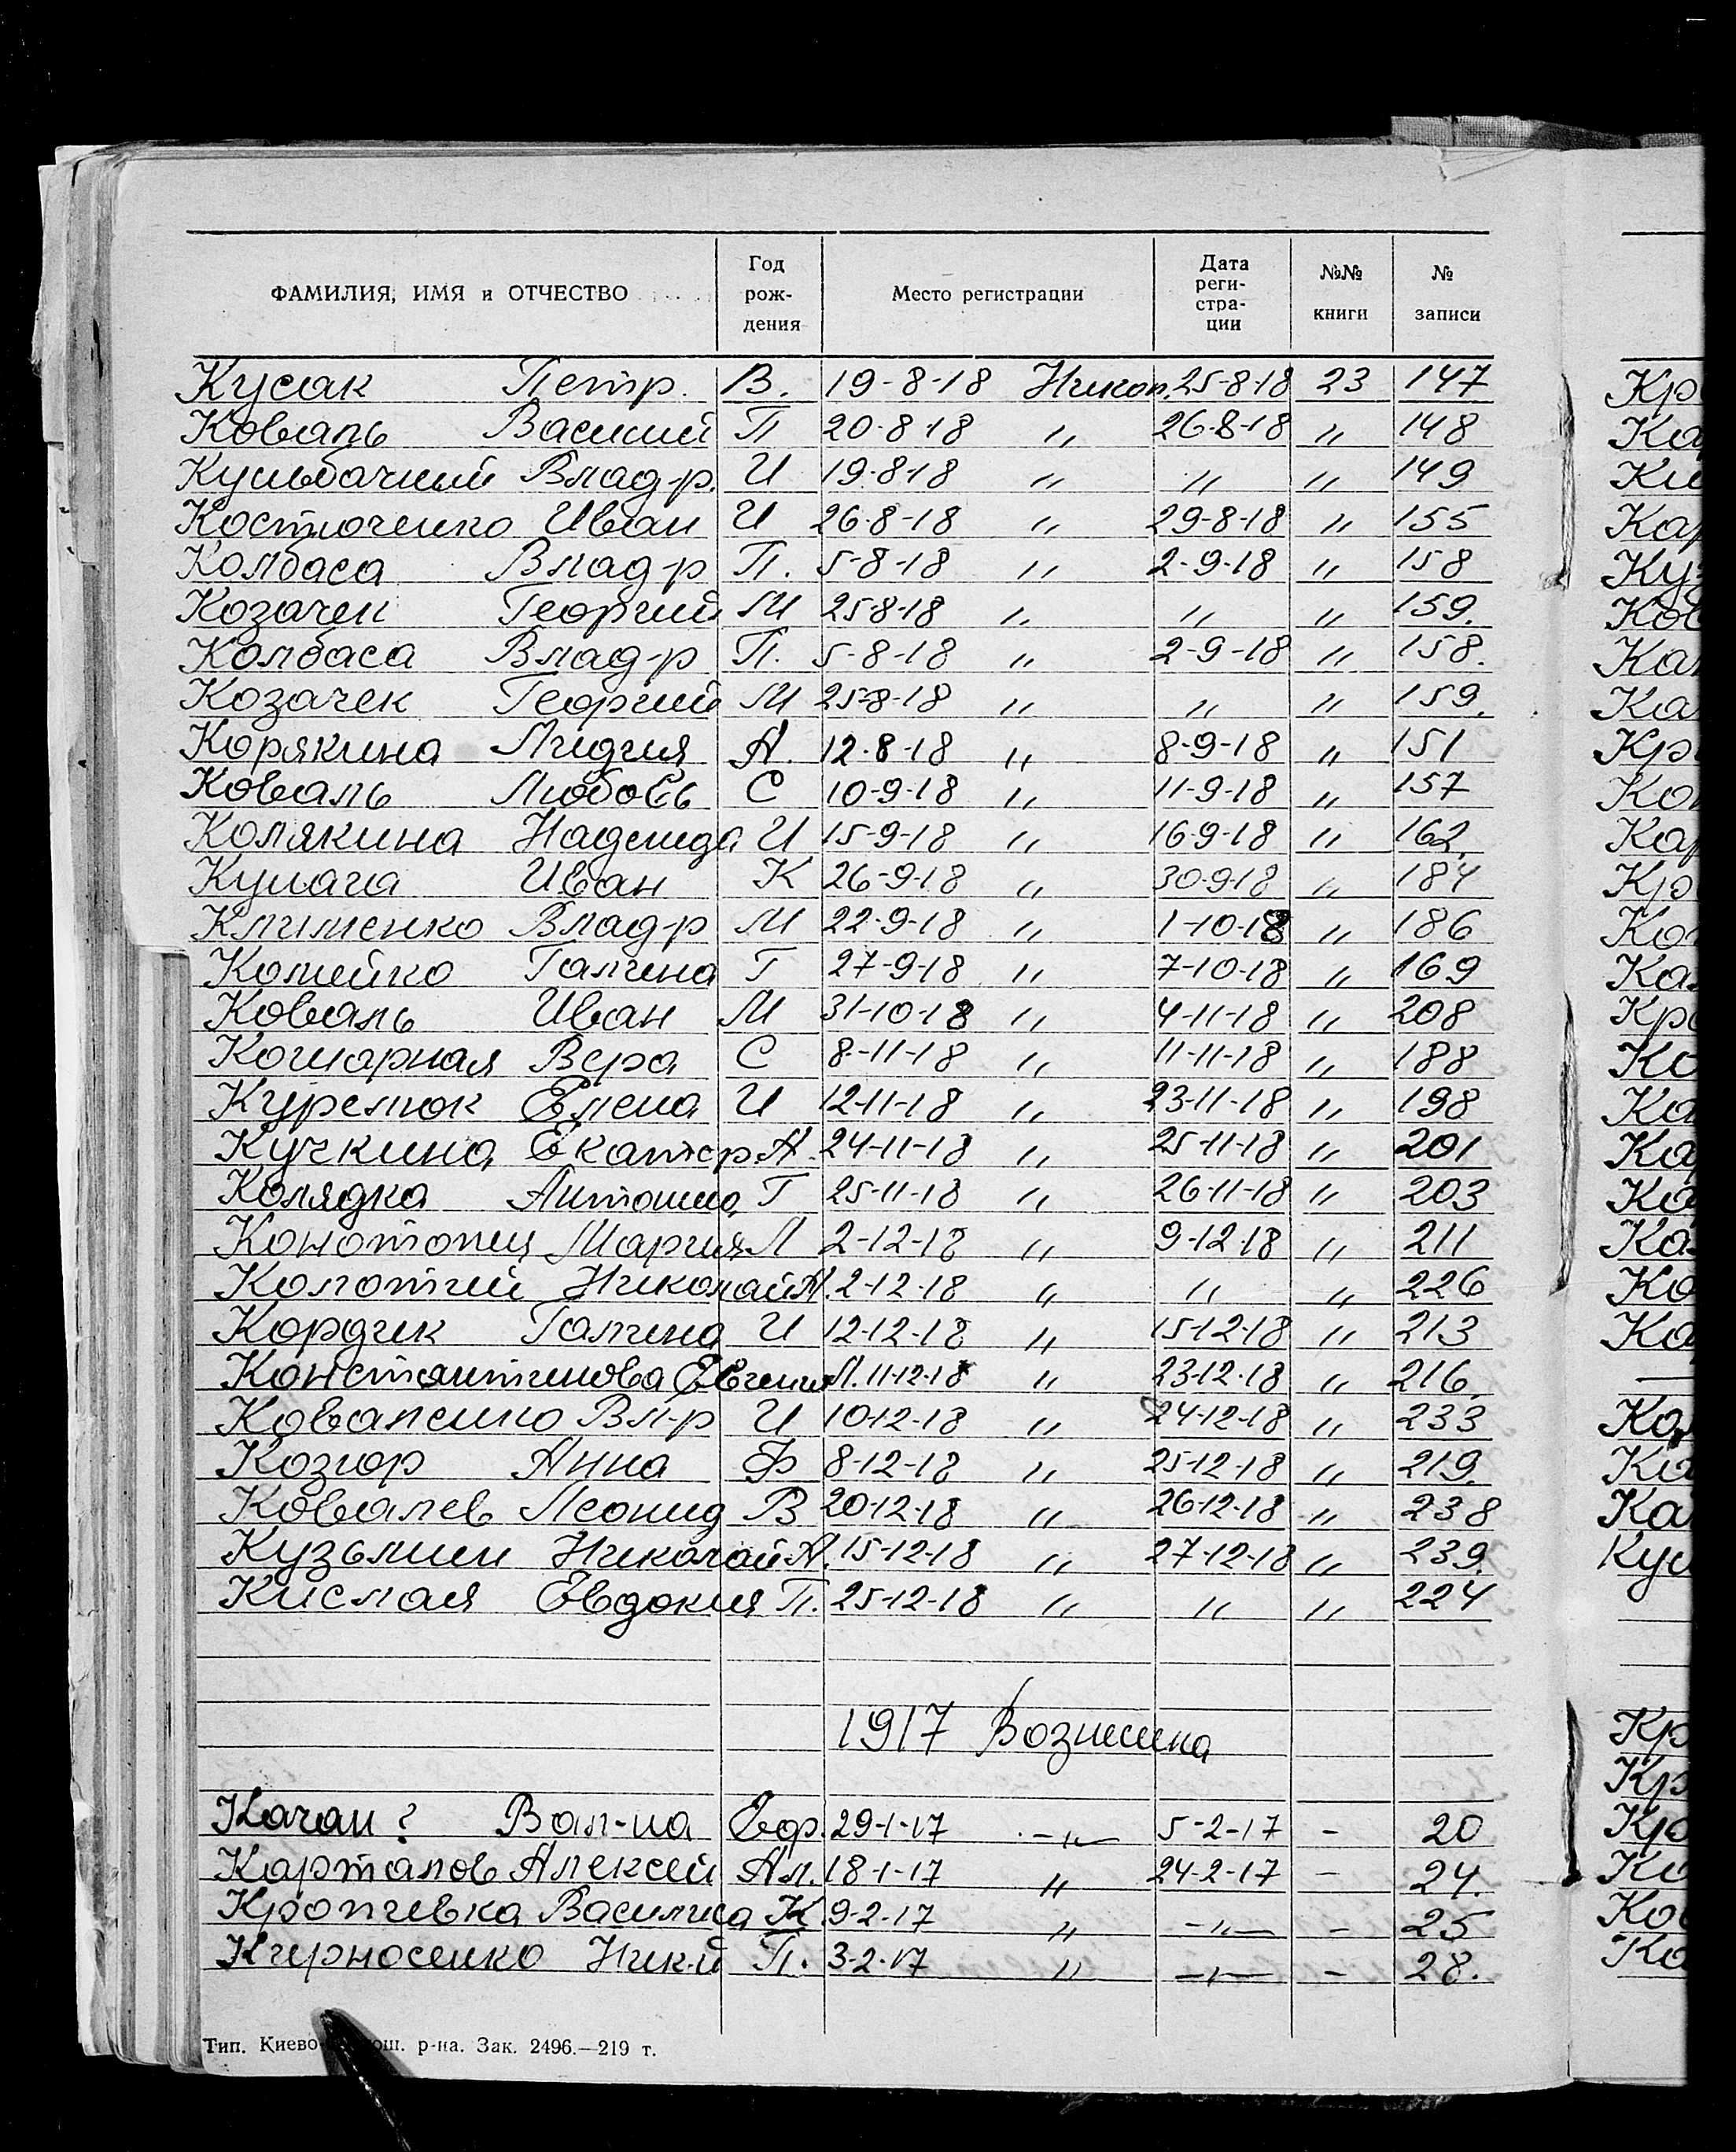 ФАМИЛИЯ, ИМЯ и ОТЧЕСТВО Год рож- дения Место регистрации Дата реги- стра- ции №№ книги № записи
Кусак Петр. В. 19-8-18 Никол. 25-8-18 23 147
Коваль Василий П 20-8-18 " 26-8-18 " 148
Кульбачний Влад-р. И 19-8-18 " " " 149
Костюченко Иван И 26-8-18 " 29-8-18 " 155
Колбаса Влад-р П. 5-8-18 " 2-9-18 " 158
Козачек Георгий М 25-8-18 " " " 159.
Колбаса Влад-р П. 5-8-18 " 2-9-18 " 158.
Козачек Георгий М 25-8-18 " " " 159.
Корякина Лидия А. 12-8-18 " 8-9-18 " 151
Коваль Любовь С 10-9-18 " 11-9-18 " 157
Колякина Надежда И 15-9-18 " 16-9-18 " 162.
Кулага Иван К 26-9-18 " 30-9-18 " 184
Клименко Влад-р М 22-9-18 " 1-10-18 " 186
Галина Г 27-9-18 " 7-10-18 " 169
Коваль Иван М 31-10-18 " 4-11-18 " 208
Кошарная Вера С 8-11-18 " 11-11-18 " 188
Курелюк Елена И 12-11-18 " 23-11-18 " 198
Кучкина Екатер А. 24-11-18 " 25-11-18 " 201
Колядка Антонина Г 25-11-18 " 26-11-18 " 203
Конотопец Мария Л 2-12-18 " 9-12-18 " 211
Колотий Николай А. 2-12-18 " " " 226
Кордик Галина И 12-12-18 " 15-12-18 " 213
Константинова Евгения Л. 11-12-18 " 23-12-18 " 216.
Коваленко Вл-р И 10-12-18 " 24-12-18 " 233
Козюр Анна Ф 8-12-18 " 25-12-18 " 219.
Ковалев Леонид В 20-12-18 " 26-12-18 " 238
Кузьмин Николай А. 15-12-18 " 27-12-18 " 239.
Кислая Евдокия П. 25-12-18 " " " 224
1917
Качан? Вал-на Еф. 29-1-17 -"- 5-2-17 - 20
Карталов Алексей Ал. 18-1-17 " 24-2-17 - 24.
Кропчевка Василиса К 9-2-17 " -"- - 25
Кирносенко Ник-й П. 3-2-17 " -"- - 28.
Тип. Киево- ош. р-на. Зак. 2496.—219 т.